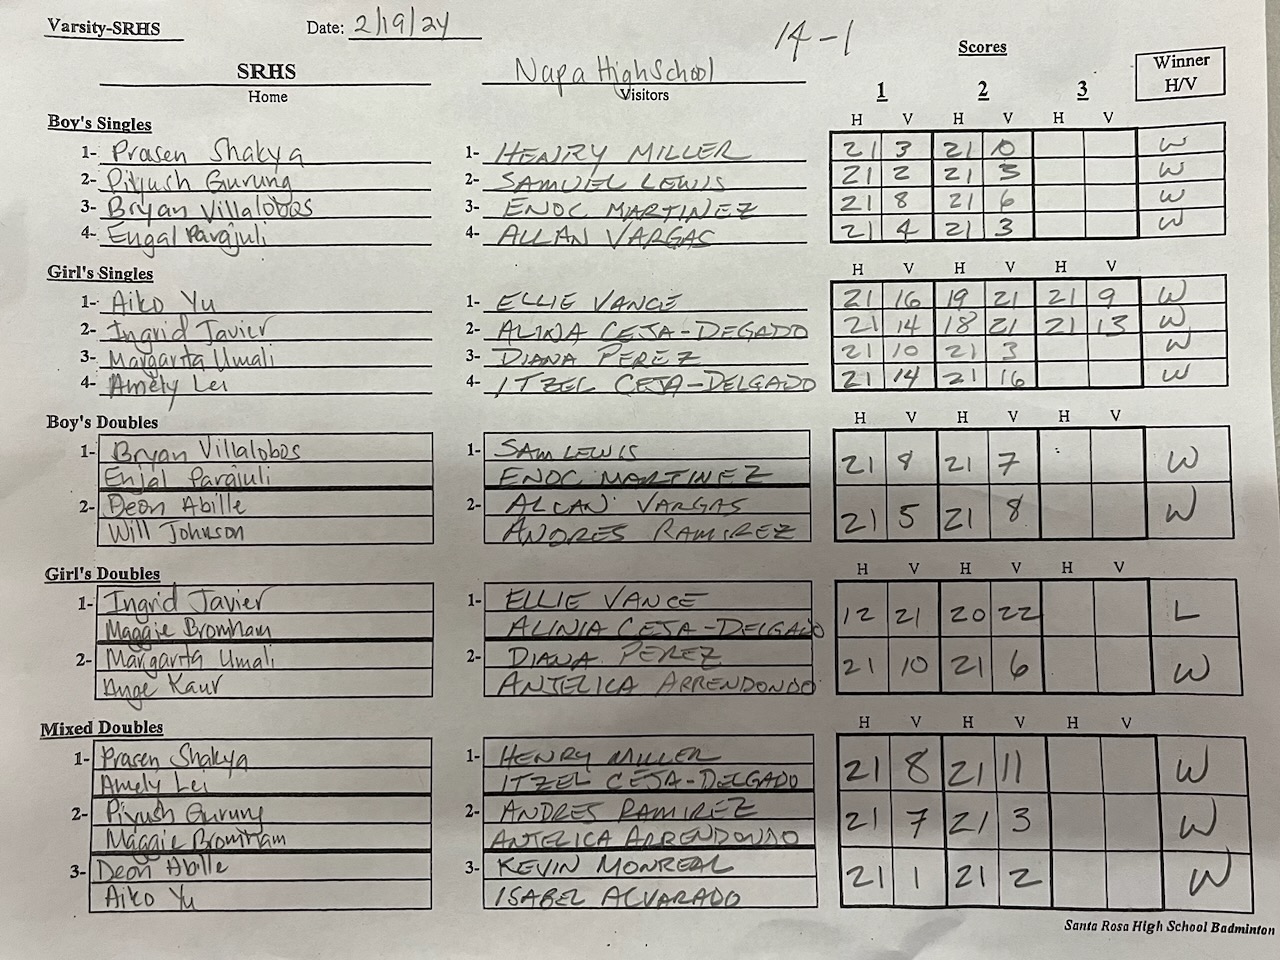 Varsity-SRHS Date: 2/19/24 14-1
Scores
SRHS Napa High School Winner
Home Visitors 1 2 3 H/V
Boy's Singles H V H V H V
1- Prasen Shakya 1- HENRY MILLER 21 3 21 10 W
2- Piyush Gurung 2- SAMUEL LEWIS 21 2 21 3 W
3- Bryan Villalobos 3- ENOC MARTINEZ 21 8 21 6 W
4- Enjal Parajuli 4- ALLAN VARGAS 21 4 21 3 W
Girl's Singles H V H V H V
1- Aiko Yu 1- ELLIE VANCE 21 16 19 21 21 9 W
2- Ingrid Javier 2- ALINA CEJA-DEGADO 21 14 18 21 21 13 W
3- Margarita Umali 3- DIANA PEREZ 21 10 21 3 W
4- Amely Lei 4- ITZEL CEJA-DELGADO 21 14 21 16 W
Boy's Doubles H V H V H V
1- Bryan Villalobos 1- SAM LEWIS 21 8 21 7 W
Enjal Parajuli ENOC MARTINEZ
2- Deon Abille 2- ALLAN VARGAS 21 5 21 8 W
Will Johnson ANDRES RAMIREZ
Girl's Doubles H V H V H V
1- Ingrid Javier 1- ELLIE VANCE 12 21 20 22 L
Maggie Bromham ALINIA CEJA-DELGADO
2- Margarita Umali 2- DIANA PEREZ 21 10 21 6 W
Ange Kaur ANJELICA ARRENDONDO
Mixed Doubles H V H V H V
1- Prasen Shakya 1- HENRY MILLER 21 8 21 11 W
Amely Lei ITZEL CEJA-DELGADO
2- Piyush Gurung 2- ANDRES RAMIREZ 21 7 21 3 W
Maggie Bromham ANJELICA ARRENDONDO
3- Deon Abille 3- KEVIN MONREAL 21 1 21 2 W
Aiko Yu ISABEL ALVARADO
Santa Rosa High School Badminton